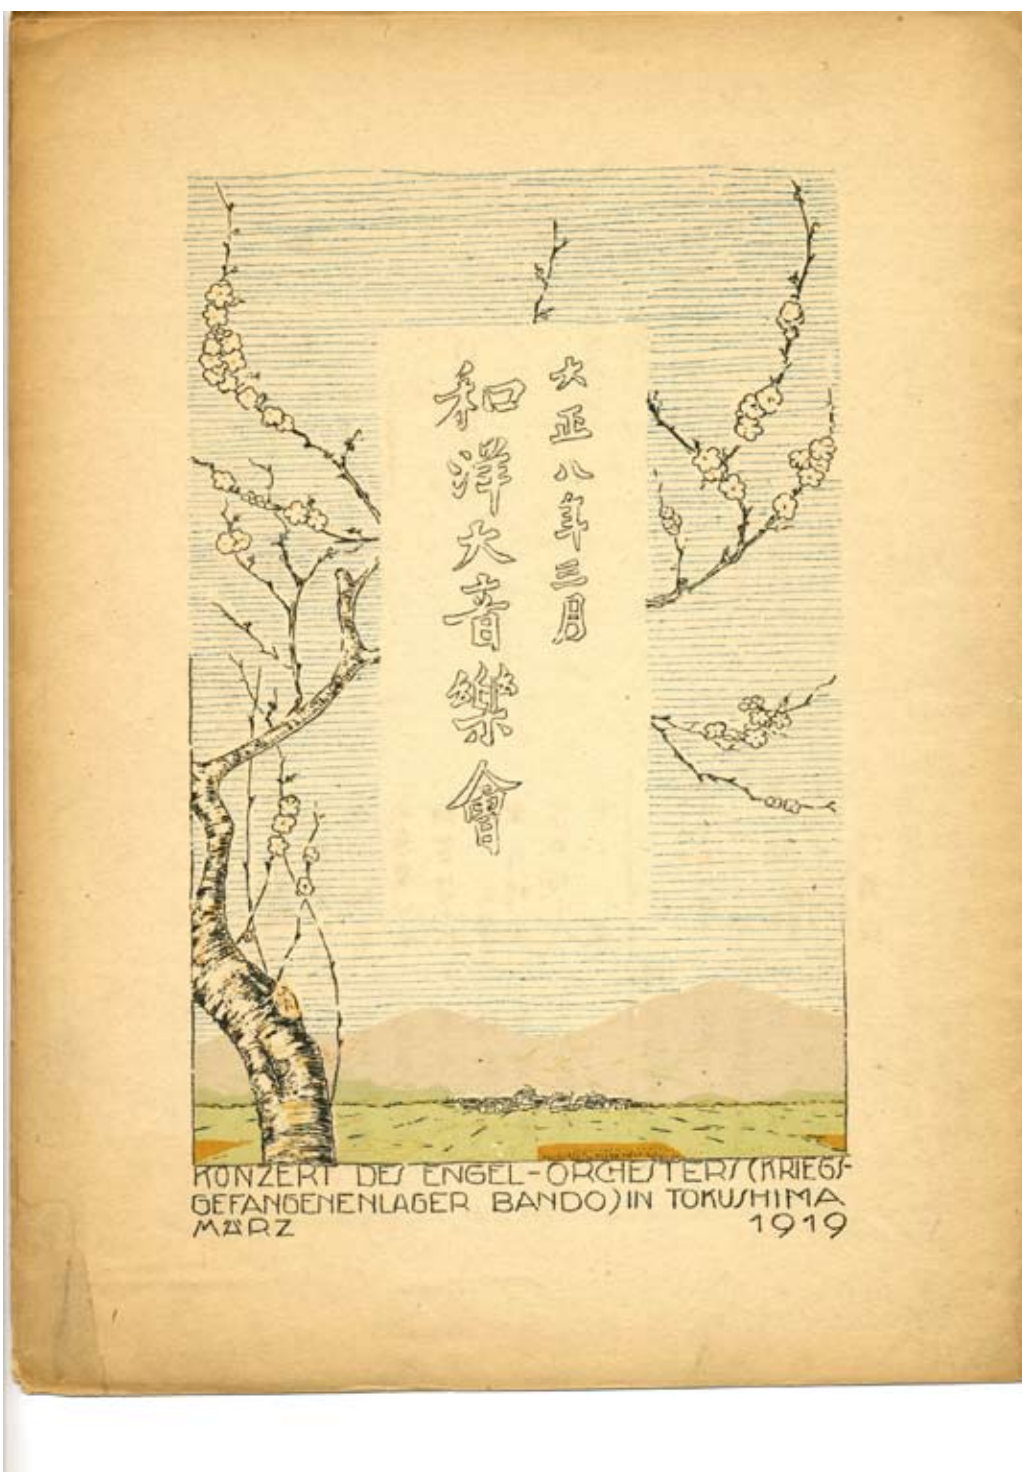 大正八年三月
和洋大音樂會
KONZERT DES ENGEL-ORCHESTERS (KRIEGS-
GEFANGENENLAGER BANDO) IN TOKUSHIMA
MÄRZ 1919